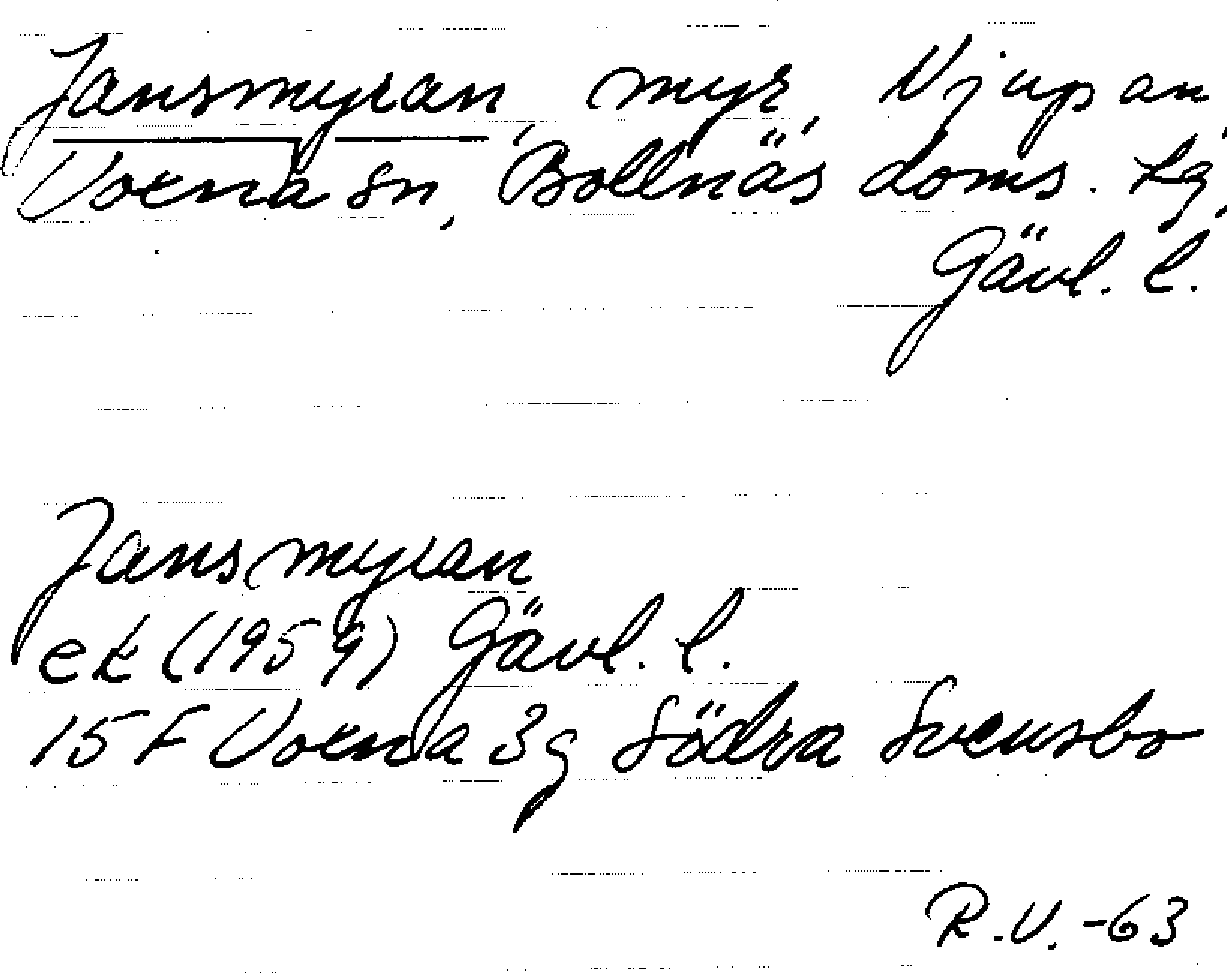 Jansmyran, myr, Njupan,
Voxna sn, Bollnäs doms. lg,
Gävl. l.
Jansmyran
ek (1959) Gävl. l.
15 F Voxna 3g Södra Svensbo
R.V. -63